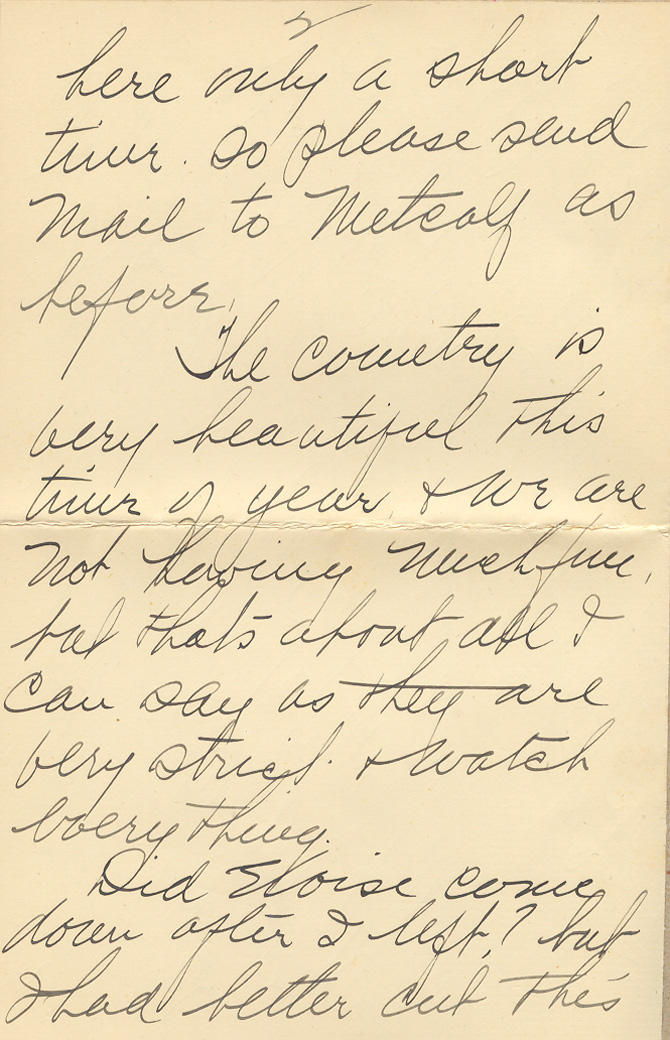 2
here only a short
time. So please send
Mail to Metcalf as
before.
The country is
very beautiful this
time of year, & we are
not having much fun,
but thats about all I
can say as they are
very strict. & watch
everything.
Did Eloise come
down after I left,? but
I had better cut this